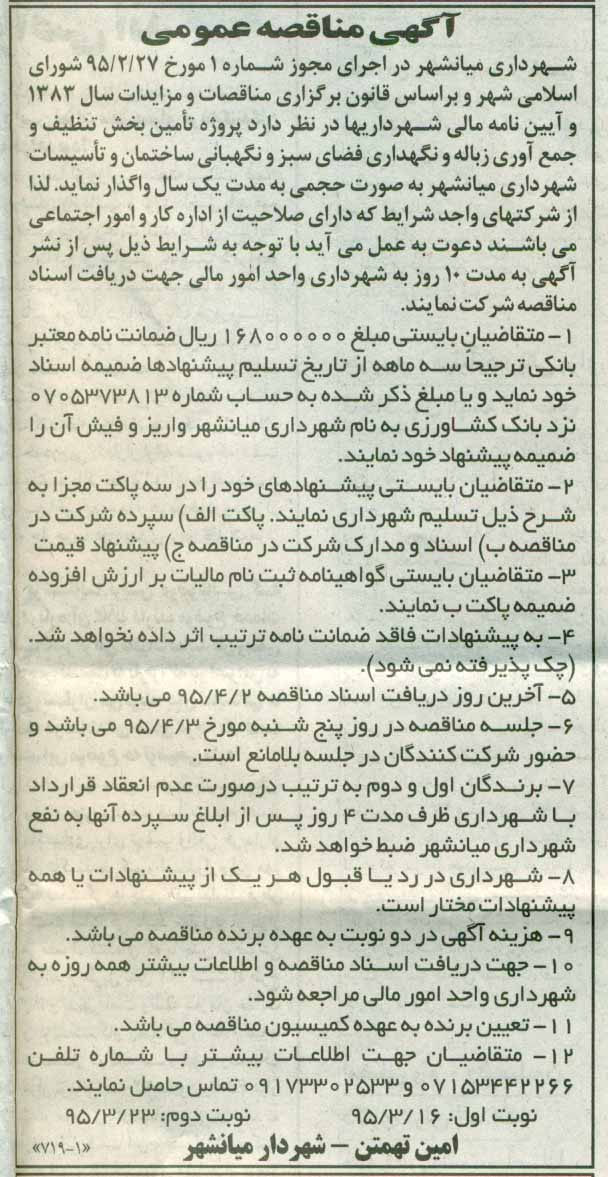 آگهی مناقصه عمومی
شهرداری میانشهر در اجرای مجوز شماره ۱ مورخ ۹۵/۲/۲۷ شورای
اسلامی شهر و براساس قانون برگزاری مناقصات و مزایدات سال ۱۳۸۳
و آیین نامه مالی شهرداریها در نظر دارد پروژه تأمین بخش تنظیف و
جمع آوری زباله و نگهداری فضای سبز و نگهبانی ساختمان و تأسیسات
شهرداری میانشهر به صورت حجمی به مدت یک سال واگذار نماید. لذا
از شرکتهای واجد شرایط که دارای صلاحیت از اداره کار و امور اجتماعی
می باشند دعوت به عمل می آید با توجه به شرایط ذیل پس از نشر
آگهی به مدت ۱۰ روز به شهرداری واحد امور مالی جهت دریافت اسناد
مناقصه شرکت نمایند.
۱- متقاضیان بایستی مبلغ ۱۶۸۰۰۰۰۰۰ ریال ضمانت نامه معتبر
بانکی ترجیحاً سه ماهه از تاریخ تسلیم پیشنهادها ضمیمه اسناد
خود نماید و یا مبلغ ذکر شده به حساب شماره ۰۷۰۵۳۷۳۸۱۳
نزد بانک کشاورزی به نام شهرداری میانشهر واریز و فیش آن را
ضمیمه پیشنهاد خود نمایند.
۲- متقاضیان بایستی پیشنهادهای خود را در سه پاکت مجزا به
شرح ذیل تسلیم شهرداری نمایند. پاکت الف) سپرده شرکت در
مناقصه ب) اسناد و مدارک شرکت در مناقصه ج) پیشنهاد قیمت
۳- متقاضیان بایستی گواهینامه ثبت نام مالیات بر ارزش افزوده
ضمیمه پاکت ب نمایند.
۴- به پیشنهادات فاقد ضمانت نامه ترتیب اثر داده نخواهد شد.
(چک پذیرفته نمی شود).
۵- آخرین روز دریافت اسناد مناقصه ۹۵/۴/۲ می باشد.
۶- جلسه مناقصه در روز پنج شنبه مورخ ۹۵/۴/۳ می باشد و
حضور شرکت کنندگان در جلسه بلامانع است.
۷- برندگان اول و دوم به ترتیب درصورت عدم انعقاد قرارداد
با شهرداری ظرف مدت ۴ روز پس از ابلاغ سپرده آنها به نفع
شهرداری میانشهر ضبط خواهد شد.
۸- شهرداری در رد یا قبول هر یک از پیشنهادات یا همه
پیشنهادات مختار است.
۹- هزینه آگهی در دو نوبت به عهده برنده مناقصه می باشد.
۱۰- جهت دریافت اسناد مناقصه و اطلاعات بیشتر همه روزه به
شهرداری واحد امور مالی مراجعه شود.
۱۱- تعیین برنده به عهده کمیسیون مناقصه می باشد.
۱۲- متقاضیان جهت اطلاعات بیشتر با شماره تلفن
۰۷۱۵۳۴۴۲۲۶۶ و ۰۹۱۷۳۳۰۲۵۳۳ تماس حاصل نمایند.
نوبت اول: ۹۵/۳/۱۶ نوبت دوم: ۹۵/۳/۲۳
امین تهمتن - شهردار میانشهر «۷۱۹-۱»